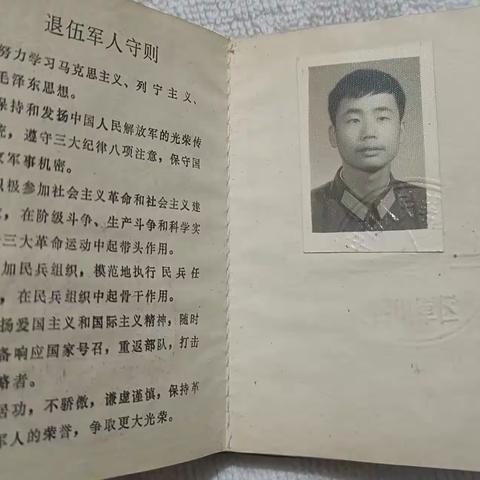 退伍军人守则
努力学习马克思主义、列宁主义、
毛泽东思想。
保持和发扬中国人民解放军的光荣传
统，遵守三大纪律八项注意，保守国
家军事机密。
积极参加社会主义革命和社会主义建
，在阶级斗争、生产斗争和科学实
三大革命运动中起带头作用。
加民兵组织，模范地执行民兵任
，在民兵组织中起骨干作用。
扬爱国主义和国际主义精神，随时
备响应国家号召，重返部队，打击
略者。
居功，不骄傲，谦虚谨慎，保持革
军人的荣誉，争取更大光荣。